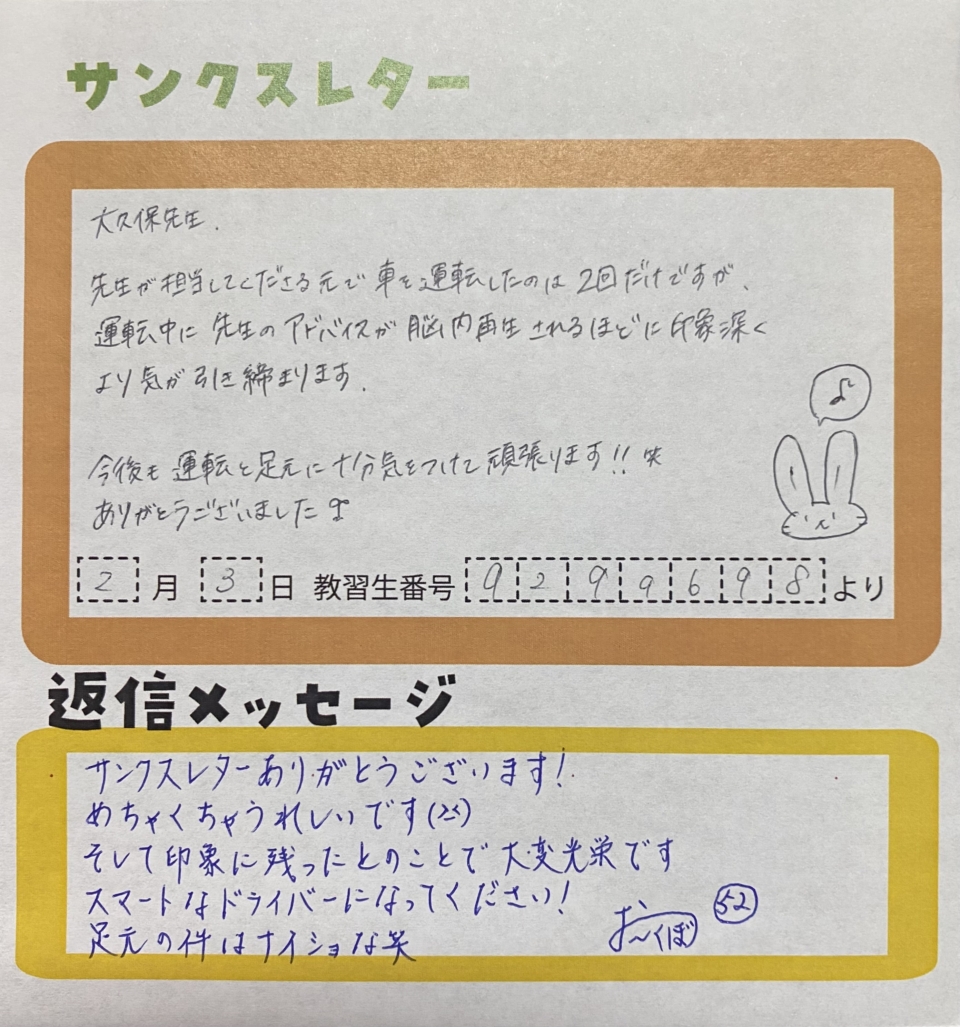 サンクスレター
大久保先生.
先生が担当してくださる元で車を運転したのは2回だけですが、
運転中に先生のアドバイスが脳内再生されるほどに印象深く
より気が引き締まります.
♪
今後も運転と足元に十分気をつけて頑張ります!! 笑
ありがとうございました
2月3日 教習生番号 9299698より
返信メッセージ
サンクスレターありがとうございます!
めちゃくちゃうれしいです
そして印象に残ったとのことで大変光栄です
スマートなドライバーになってください!
足元の件はナイショな笑
お〜くぼ 52